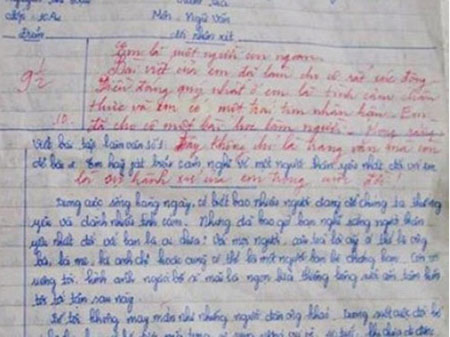 Môn: Ngữ Văn
Điểm
Lời nhận xét
9 1/2
Em là một người con ngoan.
Bài viết của em đã làm cho cô rất xúc động.
Điều đáng quý nhất ở em là tình cảm chân
thực và em có một trái tim nhân hậu. Em
đã cho cô một bài học làm người. Mong rằng
Viết bài tập làm văn số 1. Đây không chỉ là trang văn mà còn
Đề bài: Em hãy phát biểu cảm nghĩ về một người thân yêu nhất đối với em
là sự hành xử của em trong cuộc đời!
Trong cuộc sống hàng ngày, có biết bao nhiêu người đáng để chúng ta thương
yêu và dành nhiều tình cảm. Nhưng đã bao giờ bạn nghĩ rằng người thân
yêu nhất đối với bạn là ai chưa? Với mọi người, câu trả lời ấy có thể là ông
bà, là mẹ, là anh chị hoặc cũng có thể là một người bạn bè chăng hạn. Còn với
riêng tôi, hình ảnh người bố sẽ mãi là ngọn lửa thiêng liêng sưởi ấm tâm hồn
tôi tới tận sau này.
Bố tôi không may mắn như những người đàn ông khác. Trong suốt cuộc đời bố